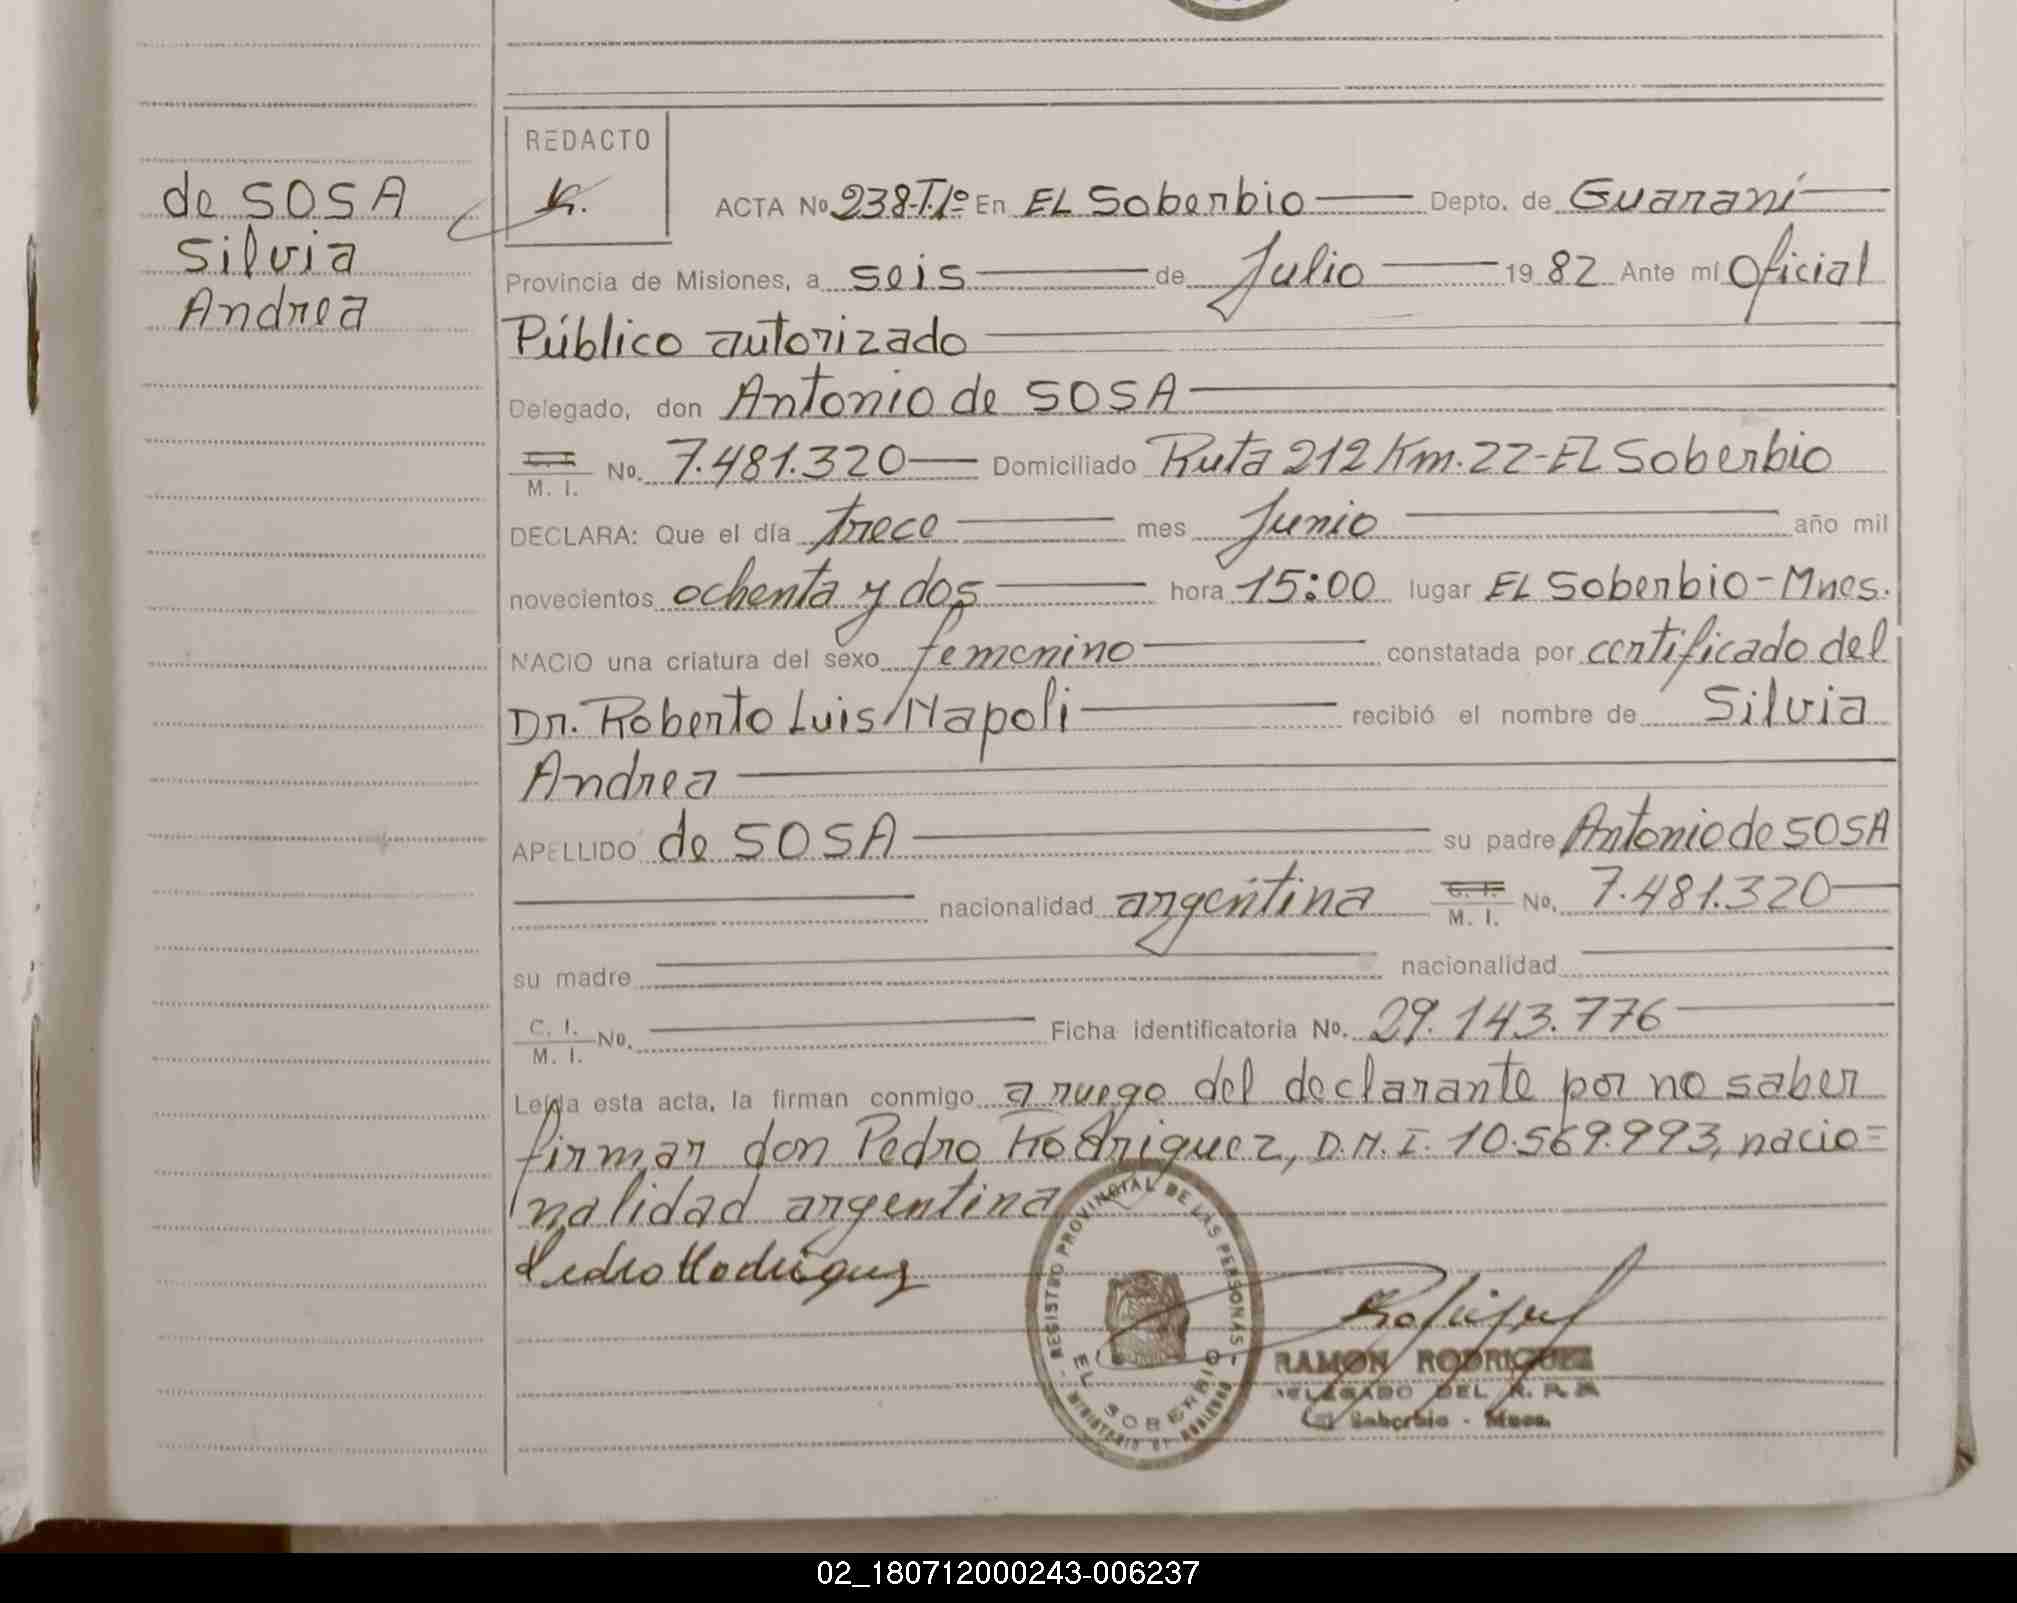 de SOSA
Silvia
Andrea
REDACTO
ACTA No 238-T.1º En EL Soberbio Depto. de Guaraní
Provincia de Misiones, a seis de Julio 19 82 Ante mí Oficial
Público autorizado
Delegado, don Antonio de SOSA
C. I.
M. I. No. 7.481.320 Domiciliado Ruta 212 Km. 22-EL Soberbio
DECLARA: Que el día trece mes Junio año mil
novecientos ochenta y dos hora 15:00 lugar EL Soberbio-Mnes.
NACIO una criatura del sexo femenino constatada por certificado del
Dr. Roberto Luis Napoli recibió el nombre de Silvia
Andrea
APELLIDO de SOSA su padre Antonio de SOSA
nacionalidad argentina C. I. M. I. No. 7.481.320
su madre nacionalidad
C. I.
M. I. No. Ficha identificatoria No. 29.143.776
Leída esta acta, la firman conmigo a ruego del declarante por no saber
firmar don Pedro Rodriguez, D.N.I. 10.569.993, nacio=
nalidad argentina
Pedro Rodriguez
REGISTRO PROVINCIAL DE LAS PERSONAS
EL SOBERBIO
MINISTERIO DE GOBIERNO
RAMON RODRIGUEZ
DELEGADO DEL R. P. P.
El Soberbio - Mnes.
02_180712000243-006237